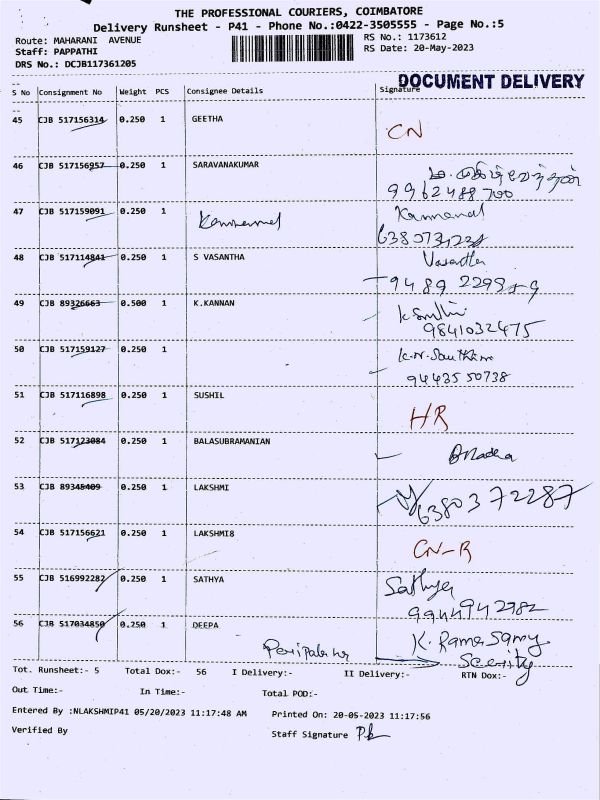 THE PROFESSIONAL COURIERS, COIMBATORE
Delivery Runsheet - P41 - Phone No.:0422-3505555 - Page No.:5
Route: MAHARANI AVENUE
Staff: PAPPATHI
DRS No.: DCJB117361205
RS No.: 1173612
RS Date: 20-May-2023
DOCUMENT DELIVERY
S No Consignment No Weight PCS Consignee Details Signature
45 CJB 517156314 0.250 1 GEETHA CN
46 CJB 516156957 0.250 1 SARAVANAKUMAR
9962488700
47 CJB 517159091 0.250 1
48 CJB 517114841 0.250 1 S VASANTHA Vasantha
49 CJB 89326663 0.500 1 K.KANNAN
9841032475
50 CJB 517159127 0.250 1
94435 50738
51 CJB 517116898 0.250 1 SUSHIL HR
52 CJB 517123084 0.250 1 BALASUBRAMANIAN
53 CJB 89348409 0.250 1 LAKSHMI 6380372287
54 CJB 517156621 0.250 1 LAKSHMI8 CN-R
55 CJB 516992282 0.250 1 SATHYA Sathya
9944942982
56 CJB 517034850 0.250 1 DEEPA K. Ramasamy
Tot. Runsheet:- 5 Total Dox:- 56 I Delivery:- II Delivery:- RTN Dox:-
Out Time:- In Time:- Total POD:-
Entered By :NLAKSHMIP41 05/20/2023 11:17:48 AM Printed On: 20-05-2023 11:17:56
Verified By Staff Signature